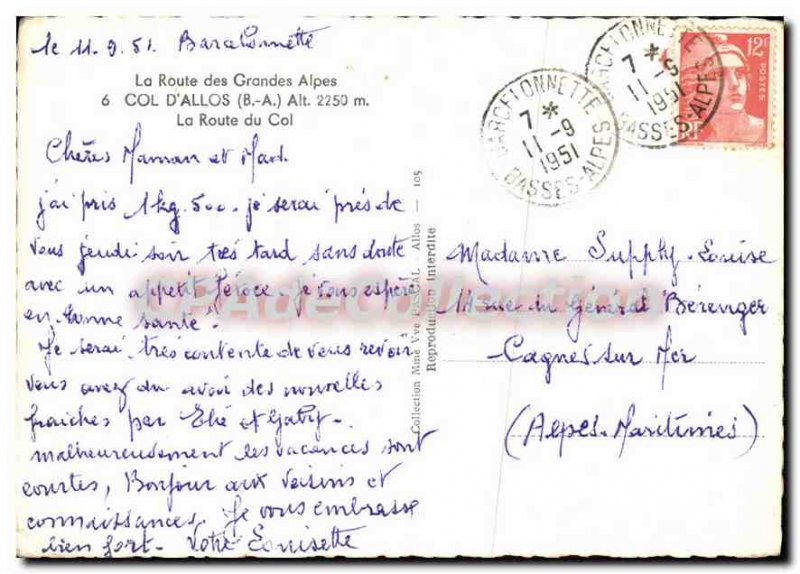 le 11.9.51. Barcelonnette
La Route des Grandes Alpes
6 COL D'ALLOS (B.-A.) Alt. 2250 m.
La Route du Col
Chères Maman et Mad.
j'ai pris 1kg.500. je serai près de
vous jeudi soir très tard sans doute
avec un appetit féroce. je vous espère
en bonne santé.
Je serai très contente de vous revoir
vous avez du avoir des nouvelles
fraiches par Elié et Gaby.
malheureusement les vacances sont
courtes, Bonjour aux voisins et
connaissances. Je vous embrasse
bien fort. Votre Louisette
Collection Mme Vve PASCAL, Allos — 105
Reproduction interdite
BARCELONNETTE
7 *
11 -9
1951
BASSES-ALPES
BARCELONNETTE
7 *
11 -9
1951
BASSES-ALPES
12F
POSTES
RF
Madame Supply Louise
du Général Bérenger
Cagnes sur Mer
(Alpes-Maritimes)
CPAdeCollection